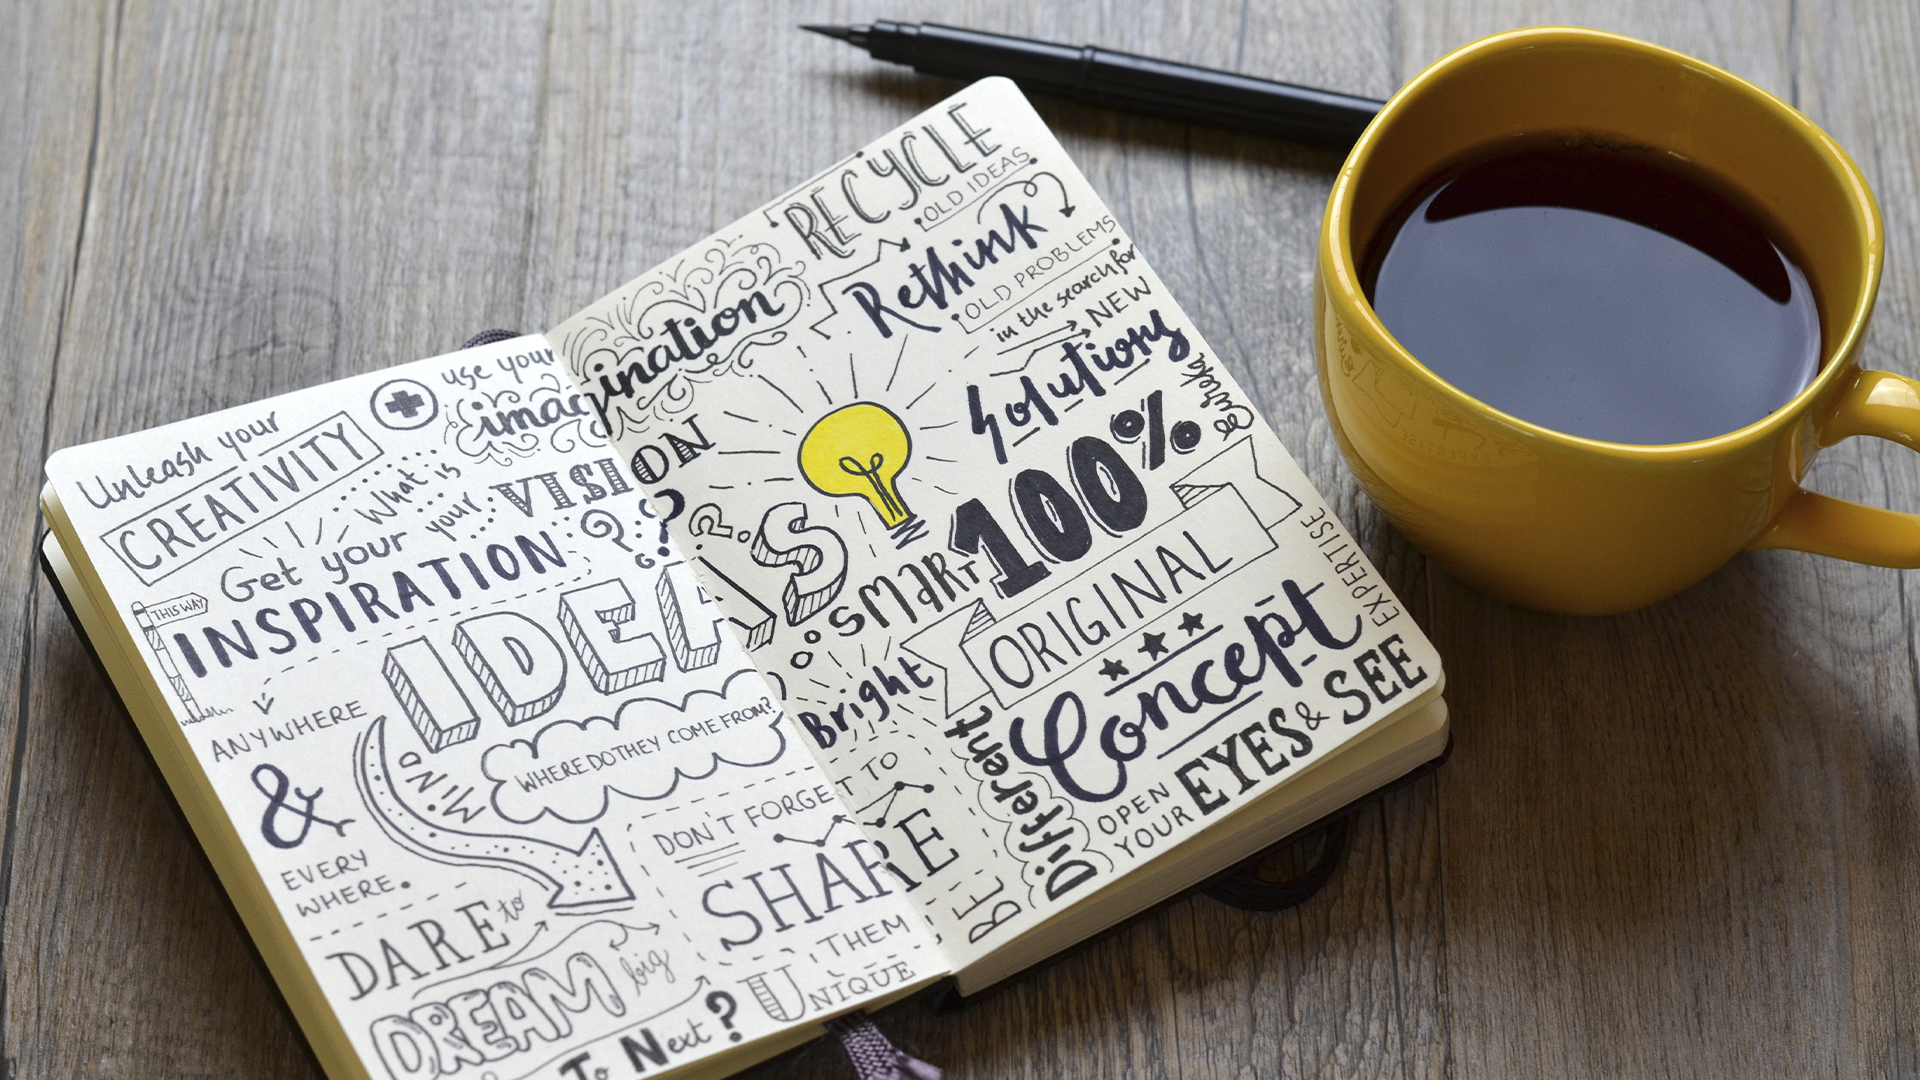 Unleash your
CREATIVITY
use your
imagination
What is
your
VISION
? ? ?
Get your
INSPIRATION
THIS WAY
ANYWHERE
&
EVERY
WHERE.
IDEAS
MIND
WHERE DO THEY COME FROM?
DON'T FORGET TO
SHARE
THEM
DARE to
DREAM big
To Next?
UNIQUE
RECYCLE
OLD IDEAS
Rethink
OLD PROBLEMS
in the search for
NEW
Solutions
Eureka
100%
SMART
ORIGINAL
Bright
Concept
EXPERTISE
BE Different
OPEN
YOUR
EYES & SEE